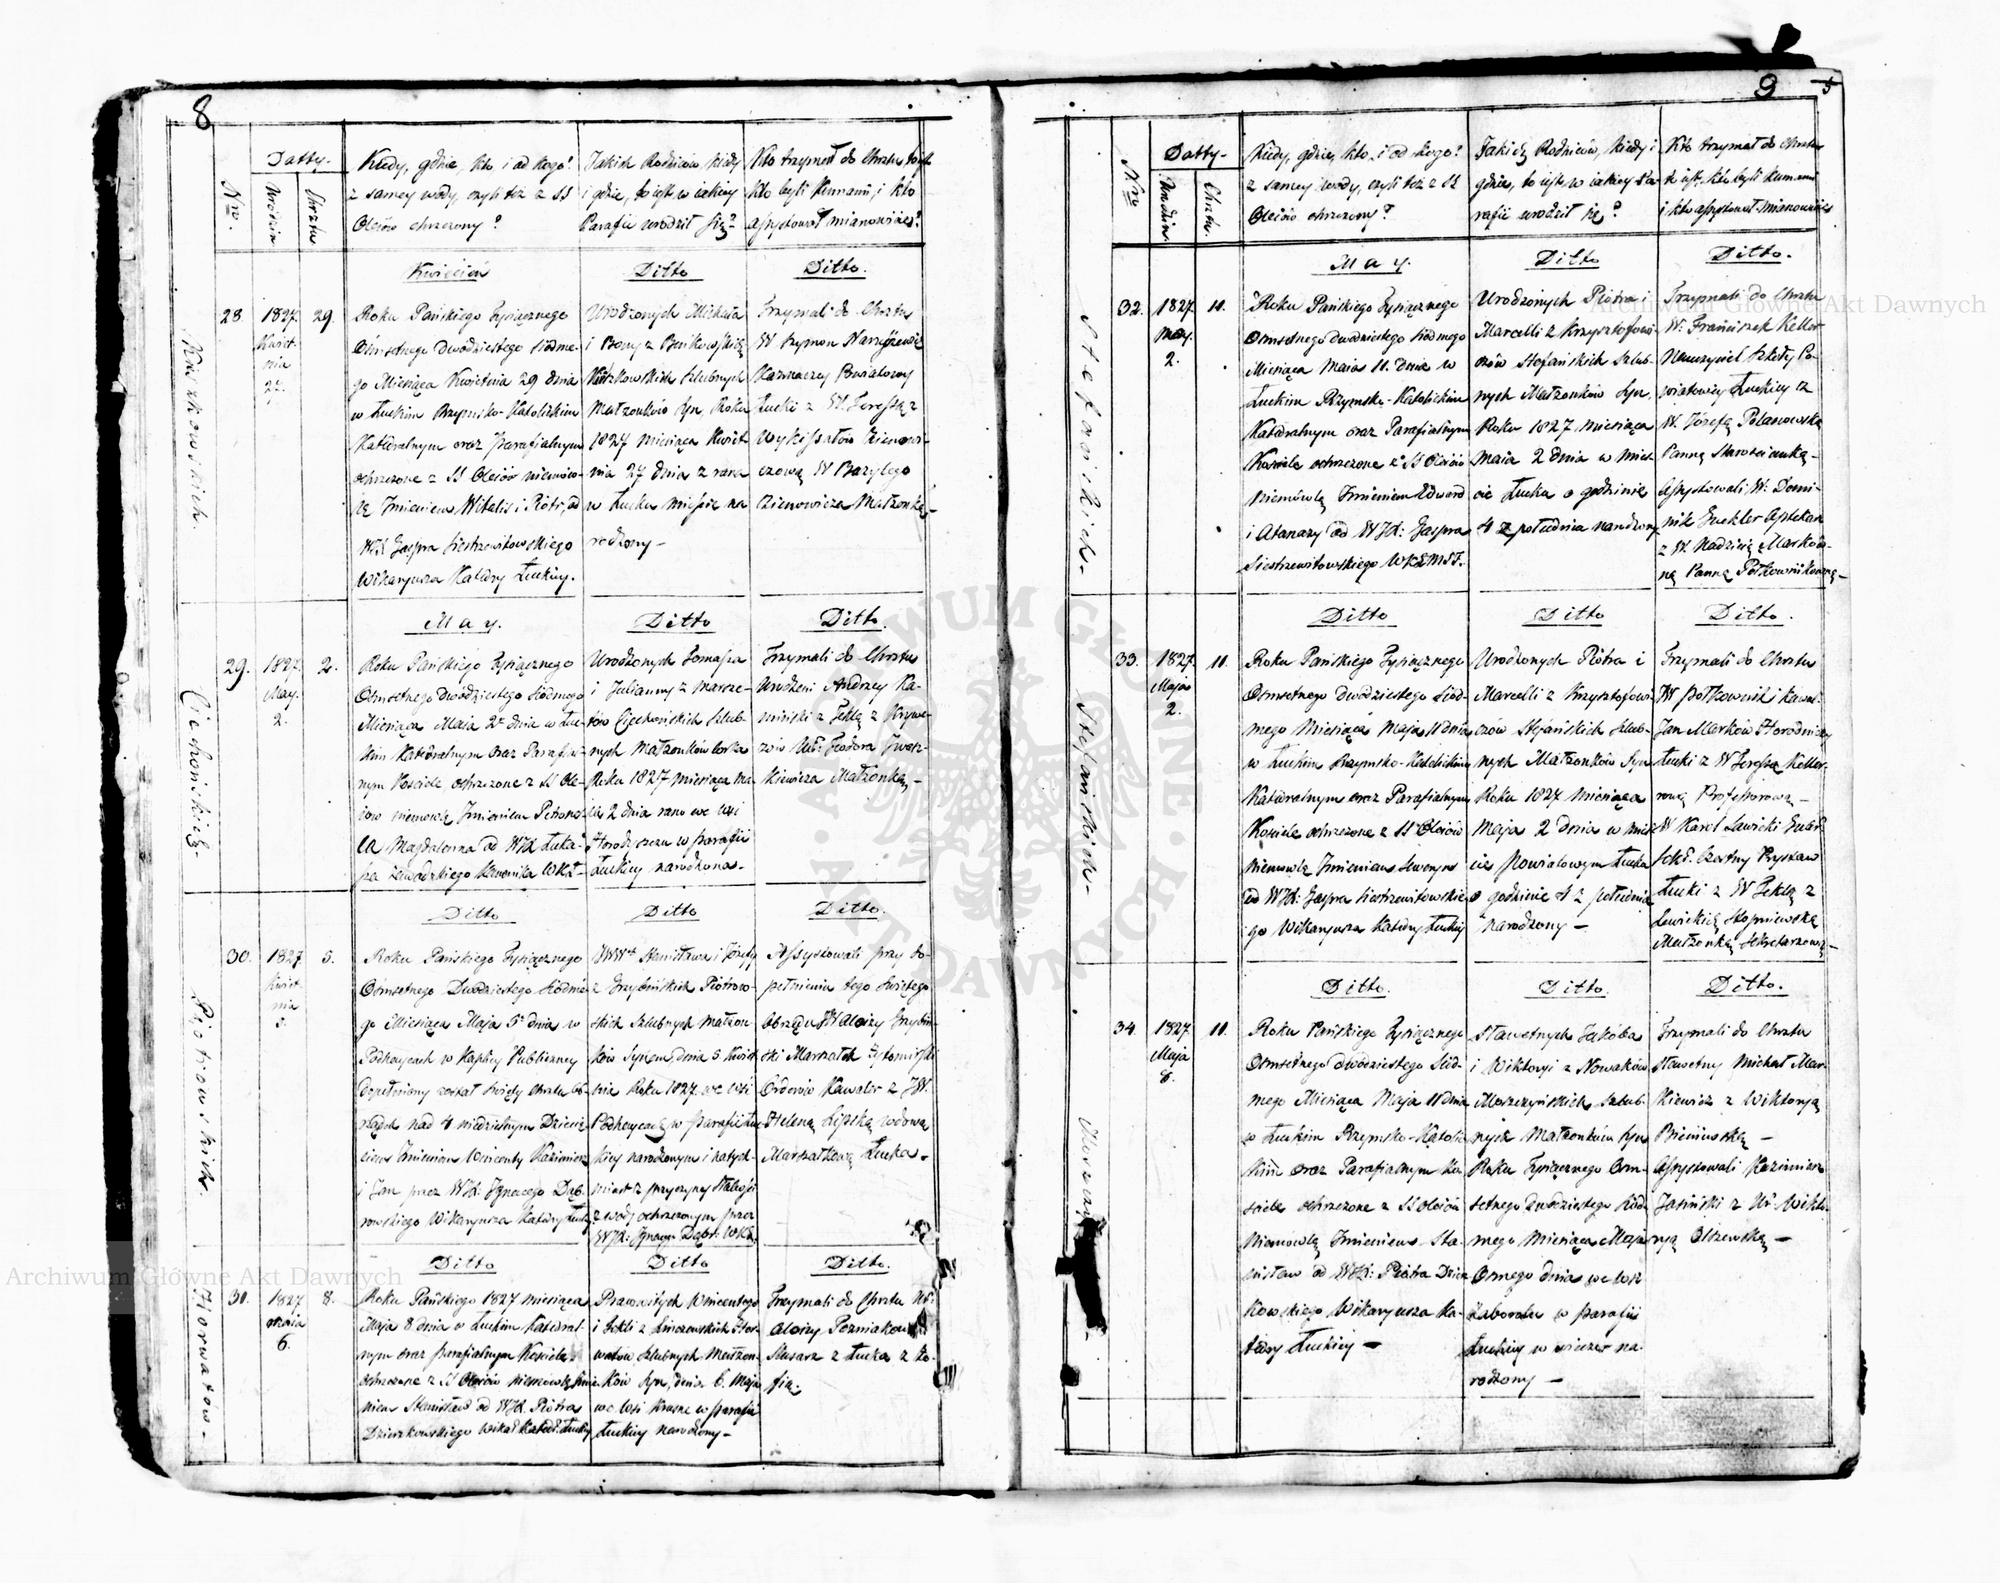 8
Datty
Nro.
Urodzin
Chrztu
Kiedy, gdzie, kto i od kogo?
z samey wody, czyli też z SS
Oleiów chrzczony?
Jakich Rodziców, kiedy
i gdzie, to iest w iakiey
Parafii urodził się?
Kto trzymał do Chrztu to iest
kto byli Kumami, i kto
assystował mianowicie?
Kwiecień
Ditto
Ditto.
28.
1827
Kwiet-
nia
27.
29.
Roku Pańskiego Tysiącznego
Ośmsetnego dwódziestego siódme-
go Miesiąca Kwietnia 29 dnia
w Łuckim Rzymsko-Katolickim
Katedralnym oraz Parafialnym
ochrzczone z SS Oleiów niemów-
lę Imieniem Witalis i Piotr, od
WX Gaspra Siestrzewitowskiego
Wikaryusza Katedry Łuckiey.
Urodzonych
szlubnych
Małżonków Syn Roku
1827 miesiąca Kwiet-
nia 27 dnia z rana
w Łucku mieście na
rodzony-
Trzymali do Chrztu
W Szymon
Kaznaczey Powiatowy
Łucki z W. Teressą z
W Bazylego
Małżonką.-
May.
Ditto
Ditto.
29.
1827
May.
2.
2.
Roku Pańskiego Tysiącznego
Ośmsetnego Dwódziestego Siódmego
Miesiąca Maia 2° dnia w Łuc-
kim Katedralnym oraz Parafial-
nym Kościele ochrzczone z SS Ole-
iów niemowlę Imieniem Petronel-
la Magdalenna od WX Łuka-
sza Zawadzkiego Kanonika
Urodzonych Tomasza
i Julianny z
Ciechońskich szlub-
nych Małżonków Corka
Roku 1827 miesiąca Ma-
ia 2 dnia rano we wsi
w parafii
Łuckiey narodzona.-
Trzymali do Chrztu
Urodzeni Andrzey Ka-
miński z Teklą z
Teodora
Małżonką.-
Ciechońskich.-
Ditto
Ditto
Ditto.
30.
1827
Kwiet-
nia
5.
5.
Roku Pańskiego Tysiącznego
Ośmsetnego Dwodziestego Siódme-
go Miesiąca Maja 5° dnia w
Podhaycach w Kaplicy Publiczney
dopełniony został Święty Chrztu Ob-
rządek nad 4 niedzielnym Dziecię-
ciem Imieniem Wincenty Kazimierz
i Jan przez WX: Ignacego Dąb-
rowskiego Wikaryusza Katedry Łuck:
Stanisława i Józefy
z Grzybińskich Piotrow-
skich szlubnych Małżon-
ków Synem, dnia 5 Kwiet-
nia Roku 1827. we wsi
Podhaycach w parafii Łuc-
kiey narodzonym i natych-
miast z przyczyny słabości
z wody ochrzczonym przez
WX: Ignacy Dąbr:
Assystowali przy do-
pełnieniu tego Świętego
Obrzędu Aloizy Grzybiń-
ski Marszałek Żytomirski
Orderów Kawaler z JW.
Heleną Lipską wdową
Marszałkową Łucka.-
Piotrowskich.
Ditto
Ditto
Ditto.
31.
1827
Maia
6.
8.
Roku Pańskiego 1827 miesiąca
Maja 8 dnia w Łuckim Katedral-
nym oraz parafialnym Kościele
ochrzczone z SS Oleiów niemowlę Imie-
niem Stanisław od WX. Piotra
Dzierzkowskiego
Prawowitych Wincentego
i Tekli z Hor-
watów szlubnych Małżon-
ków Syn, dnia 6. Maja
we wsi Krasne w parafii
Łuckiey narodzony-
Trzymali do Chrztu Ur:
Aloizy
z Łucka z Zo-
fią.
Horwatów.-
9
5
Nro
Datty-
Urodzin.
Chrztu.
Kiedy, gdzie, kto, i od kogo?
z samey wody, czyli też z SS
Oleiów chrzczony?
Jakich Rodziców, kiedy i
gdzie, to iest w iakiey Pa-
rafii urodził się?
Kto trzymał do Chrztu
to iest, kto byli Kumami
i kto assystował mianowicie
May.
Ditto
Ditto.
32.
1827
May.
2.
11.
Roku Pańskiego Tysiącznego
Ośmsetnego dwudziestego Siódmego
Miesiąca Maia 11. dnia w
Łuckim Rzymsko-Katolickim
Katedralnym oraz Parafialnym
Kościele ochrzczone z SS Oleiów
Niemówlę Imieniem Edward
i Atanazy od WX: Gaspra
Siestrzewitowskiego
Urodzonych Piotra i
Marcelli z Krzysztofowi-
czów Stefańskich szlub-
nych Małżonków Syn,
Roku 1827 miesiąca
Maia 2 dnia w mieś-
cie Łucka o godzinie
4 z południa narodzony
Trzymali do Chrztu
W. Franciszek Keller
Nauczyciel Szkoły Po-
wiatowey Łuckiey z
W. Józefą Polanowską
Panną Starościanką.-
Assystowali W: Domi-
nik Aptekarz
z W. Nadzieią Marków-
ną Panną Półkownikowną.-
Stefańskich.
Ditto
Ditto
Ditto.
33.
1827
Maja
2.
11.
Roku Pańskiego Tysiącznego
Ośmsetnego Dwudziestego Siód-
mego Miesiąca Maja 11 dnia
w Łuckim Rzymsko-Katolickim
Katedralnym oraz Parafialnym
Kościele ochrzczone z SS Oleiów
niemowlę Imieniem Seweryn
od WX: Gaspra Siestrzewitowskie-
go Wikaryusza Katedry Łuckiey
Urodzonych Piotra i
Marcelli z Krzysztofowi-
czów Stefańskich szlub-
nych Małżonków Syn
Roku 1827 miesiąca
Maja 2 dnia w mieś-
cie Powiatowym Łucku
o godzinie 4 z południa
narodzony-
Trzymali do Chrztu
W Połkownik i Kawal:
Jan Marków Horodniczy
Łucki z W Teressą Keller-
ową Professorową-
W Karol Lewicki
Czastny Przystaw
Łucki z W Teklą z
Lewickich Stępniewską
Małżonką Sekretarzową.-
Stefańskich.-
Ditto.
Ditto.
Ditto.
34
1827
Maja
8.
11.
Roku Pańskiego Tysiącznego
Ośmsetnego dwódziestego Siód-
mego Miesiąca Maja 11 dnia
w Łuckim Rzymsko-Katolic-
kim oraz Parafialnym Ko-
ściele ochrzczone z SS Oleiów
Niemowlę Imieniem Sta-
nisław od WX: Piotra Dzierz-
kowskiego Wikaryusza Ka-
tedry Łuckiey-
Sławetnych Jakóba
i Wiktoryi z Nowaków
szlub-
nych Małżonków Syn
Roku Tysiącznego Ośm-
setnego Dwudziestego Siód-
mego Miesiąca Maja
Osmego dnia we wsi
Zaborolu w parafii
Łuckiey w wieczor na-
rodzony-
Trzymali do Chrztu
Sławetny Michał Mar-
kiewicz z Wiktoryą
Assystowali Kazimierz
Jasiński z Ur: Wikto-
ryą Olszewską-
Archiwum Główne Akt Dawnych
Archiwum Główne Akt Dawnych
ARCHIWUM GŁÓWNE AKT DAWNYCH